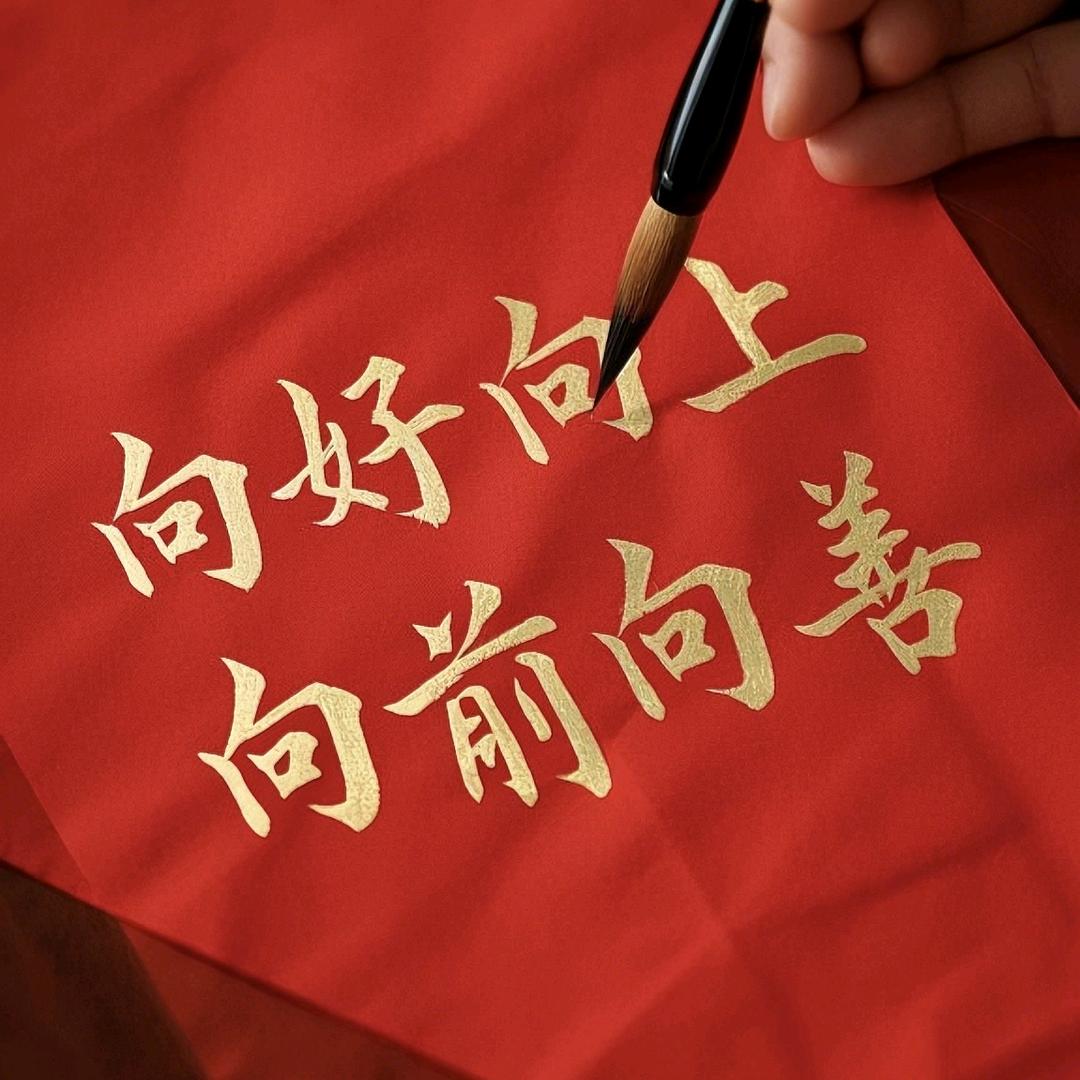 向好向上
向前向善